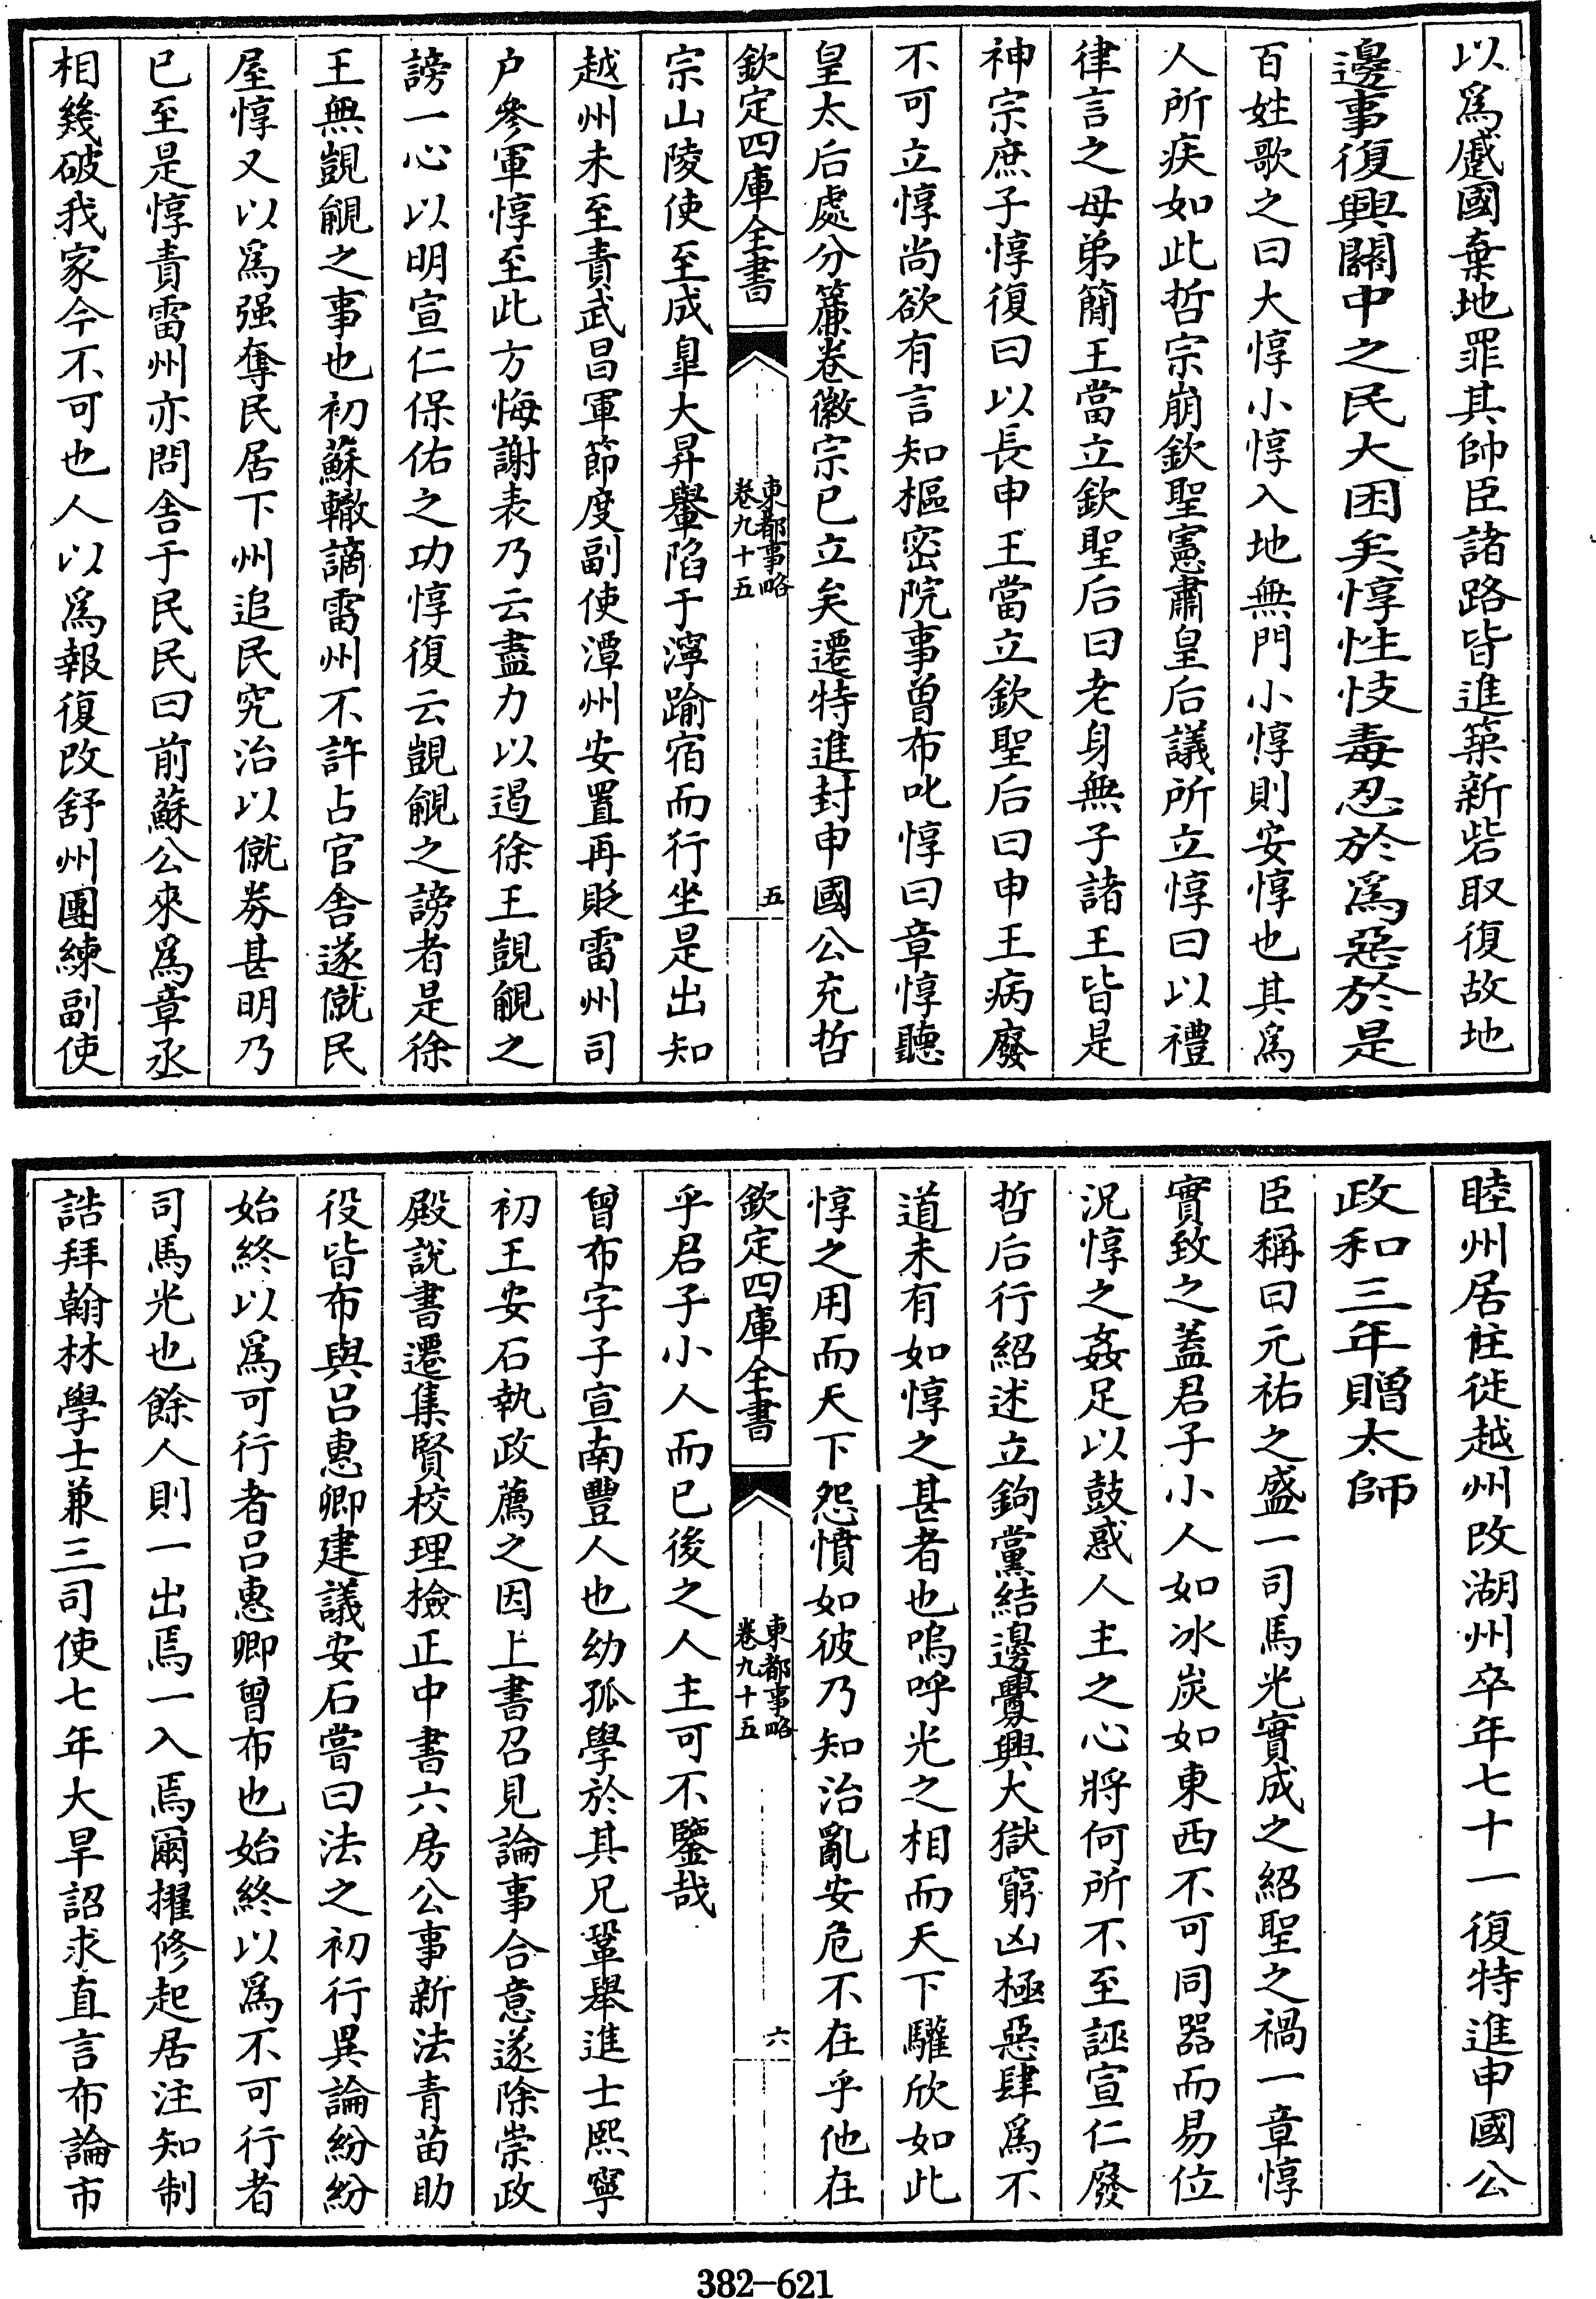 以爲蹙國棄地罪其帥臣諸路皆進築新砦取復故地
邊事復興關中之民大困矣惇性忮毒忍於爲惡於是
百姓歌之曰大惇小惇入地無門小惇則安惇也其爲
人所疾如此哲宗崩欽聖憲肅皇后議所立惇曰以禮
律言之母弟簡王當立欽聖后曰老身無子諸王皆是
神宗庶子惇復曰以長申王當立欽聖后曰申王病廢
不可立惇尚欲有言知樞密院事曾布叱惇曰章惇聽
皇太后處分簾卷徽宗已立矣遷特進封申國公充哲
欽定四庫全書
東都事略
卷九十五
五
宗山陵使至成臯大昇轝陷于濘踰宿而行坐是出知
越州未至責武昌軍節度副使潭州安置再貶雷州司
户參軍惇至此方悔謝表乃云盡力以遏徐王覬覦之
謗一心以明宣仁保佑之功惇復云覬覦之謗者是徐
王無覬覦之事也初蘇轍謫雷州不許占官舍遂僦民
屋惇又以爲强奪民居下州追民究治以僦劵甚明乃
已至是惇責雷州亦問舍于民民曰前蘇公來爲章丞
相幾破我家今不可也人以爲報復改舒州團練副使
睦州居住徙越州改湖州卒年七十一復特進申國公
政和三年贈太師
臣稱曰元祐之盛一司馬光實成之紹聖之禍一章惇
實致之蓋君子小人如冰炭如東西不可同器而易位
況惇之姦足以鼓惑人主之心將何所不至誣宣仁廢
哲后行紹述立鉤黨結邊釁興大獄窮凶極惡肆爲不
道未有如惇之甚者也嗚呼光之相而天下驩欣如此
惇之用而天下怨憤如彼乃知治亂安危不在乎他在
欽定四庫全書
東都事略
卷九十五
六
乎君子小人而已後之人主可不鑒哉
曾布字子宣南豐人也幼孤學於其兄鞏舉進士熙寧
初王安石執政薦之因上書召見論事合意遂除崇政
殿說書遷集賢校理檢正中書六房公事新法青苗助
役皆布與呂惠卿建議安石嘗曰法之初行異論紛紛
始終以爲可行者呂惠卿曾布也始終以爲不可行者
司馬光也餘人則一出焉一入焉爾擢修起居注知制
誥拜翰林學士兼三司使七年大旱詔求直言布論市
382-621